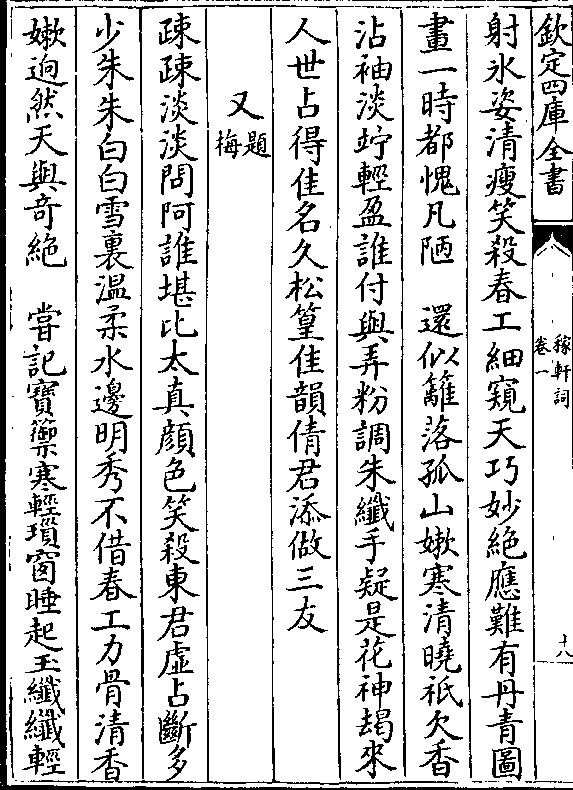 欽定四庫全書
稼軒詞
卷一
十八
射氷姿清瘦笑殺春工細窺天巧妙絶應難有丹青圖
畫一時都愧凡陋　還似籬落孤山嫰寒清曉祇欠香
沾袖淡竚輕盈誰付與弄粉調朱纖手疑是花神朅來
人世占得佳名久松篁佳韻倩君添做三友
又題梅
疎疎淡淡問阿誰堪比太真顔色笑殺東君虛占斷多
少朱朱白白雪裏温柔水邊明秀不借春工力骨清香
嫰逈然天與奇絶　嘗記寳籞寒輕瑣窗睡起玉纖纖輕